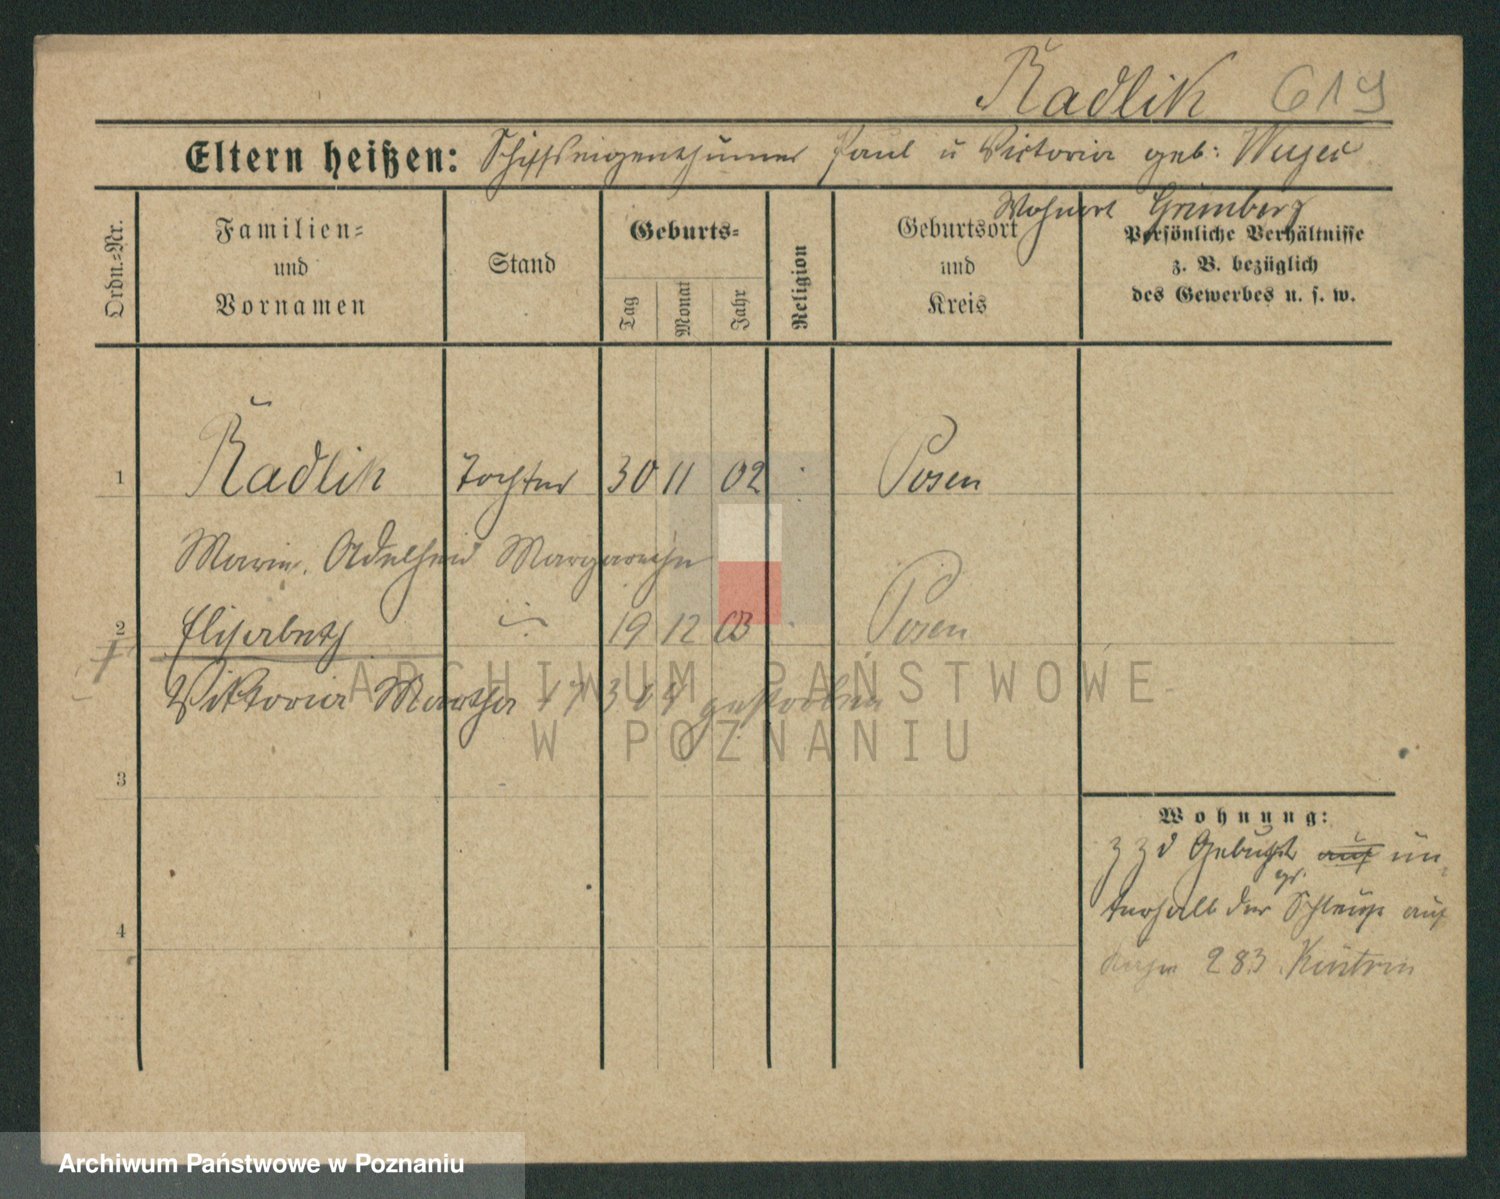 Radlik 619
Eltern heißen: Schiffseigenthümer Paul u Victoria geb:
Wohnort Grünberg
Ordn.-Nr.
Familien-
und
Vornamen
Stand
Geburts-
Tag
Monat
Jahr
Religion
Geburtsort
und
Kreis
Persönliche Verhältnisse
z. B. bezüglich
des Gewerbes u. s. w.
1 Radlik Tochter 30 11 02 Posen
Marie. Adelheid Margarethe
2 Elisabeth 19 12 03 Posen
Viktoria Martha 17 3 04 gestorben
ARCHIWUM PAŃSTWOWE
W POZNANIU
3
4
Wohnung:
z Z d Geburt auf un-
terhalb der gr. Schleuse auf
Kahn 283 Küstrin
Archiwum Państwowe w Poznaniu